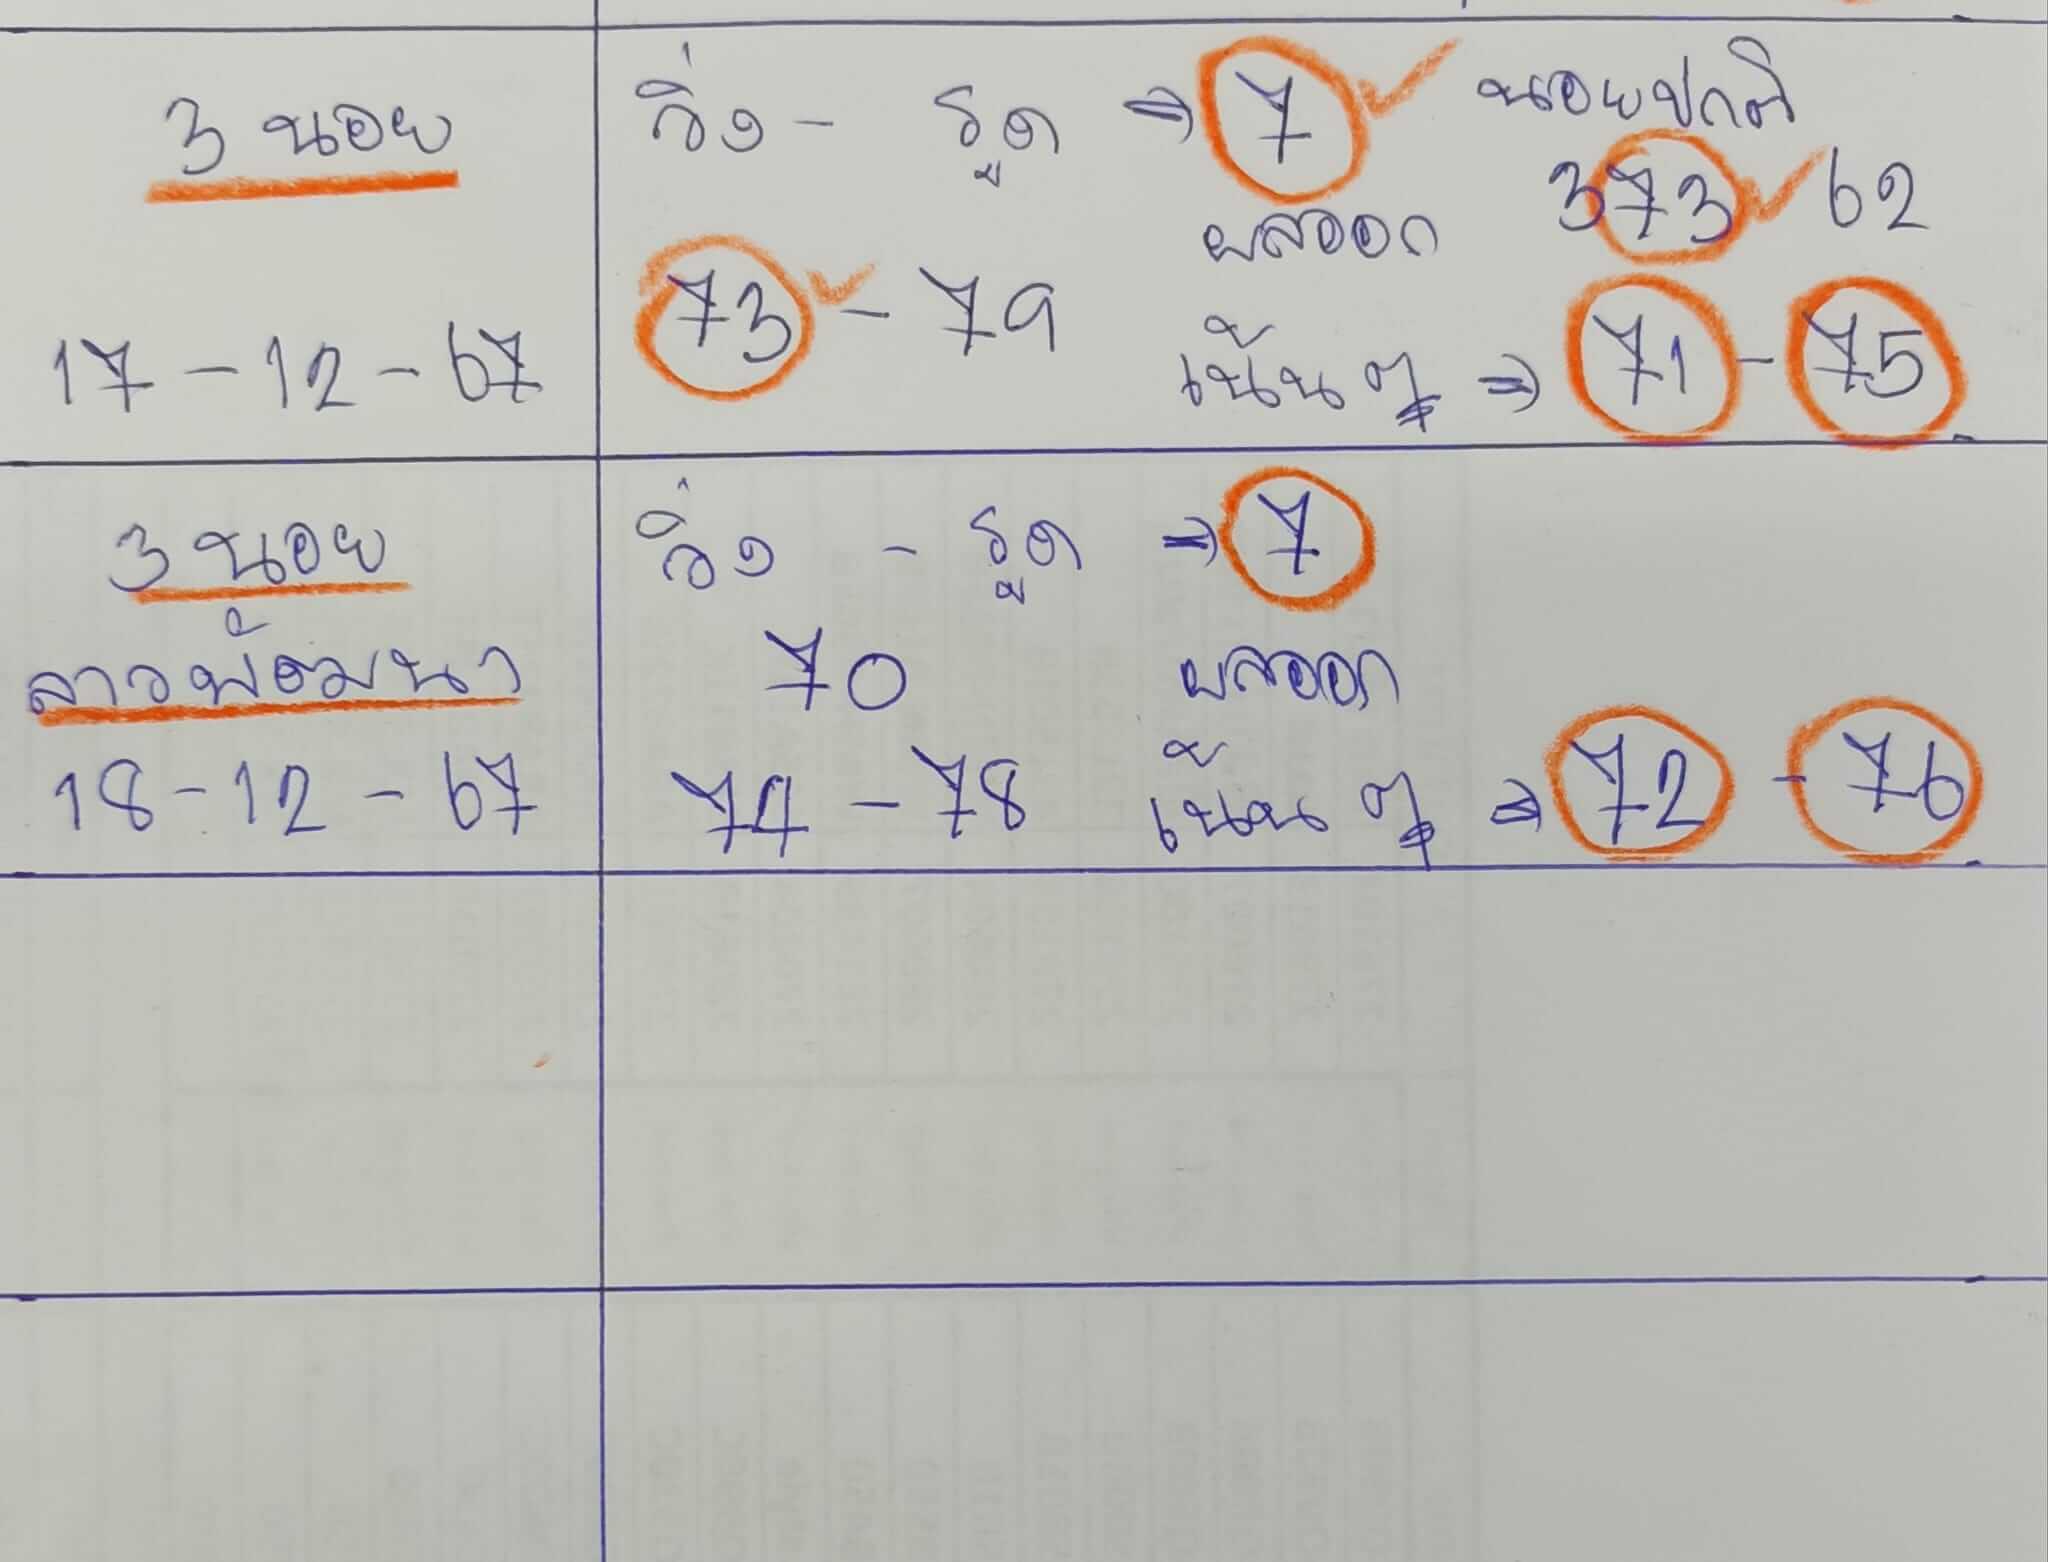 3 นอย
17 - 12 - 67
วิ่ง - รูด ⇒ 7 ✓ นอยปกติ
ผลออก 373 ✓ 62
73 ✓ - 79 เน้นๆ ⇒ 71 - 75
3 นอย
ลาวพัฒนา
18 - 12 - 67
วิ่ง - รูด ⇒ 7
70 ผลออก
74 - 78 เน้นๆ ⇒ 72 - 76